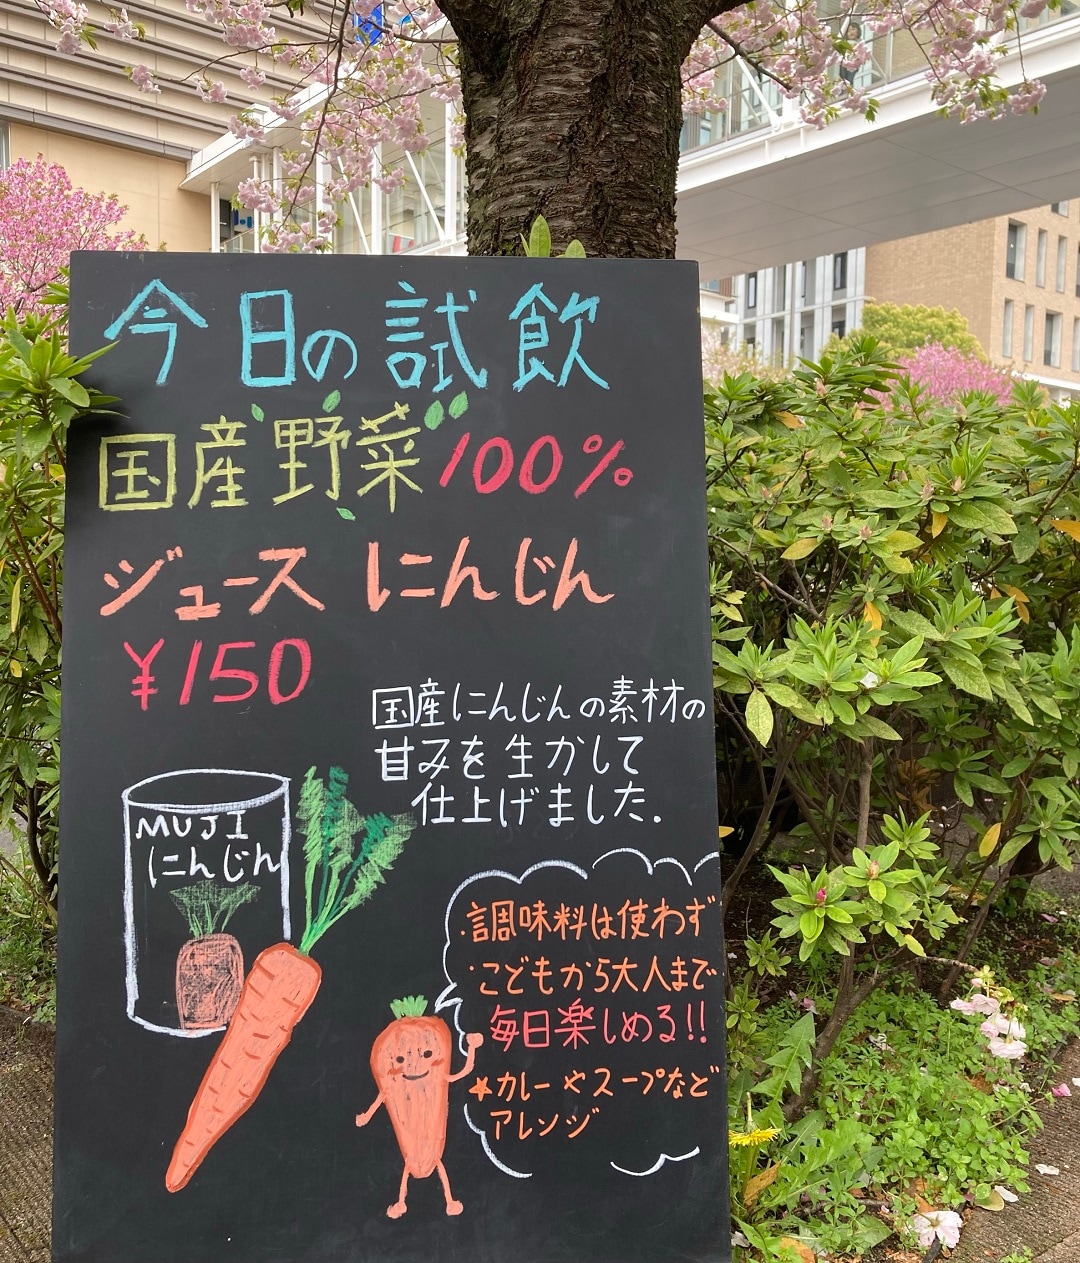 今日の試飲
国産野菜100%
ジュース にんじん
¥150
国産にんじんの素材の
甘みを生かして
仕上げました.
MUJI
にんじん
・調味料は使わず
・こどもから大人まで
毎日楽しめる!!
★カレーやスープなど
アレンジ